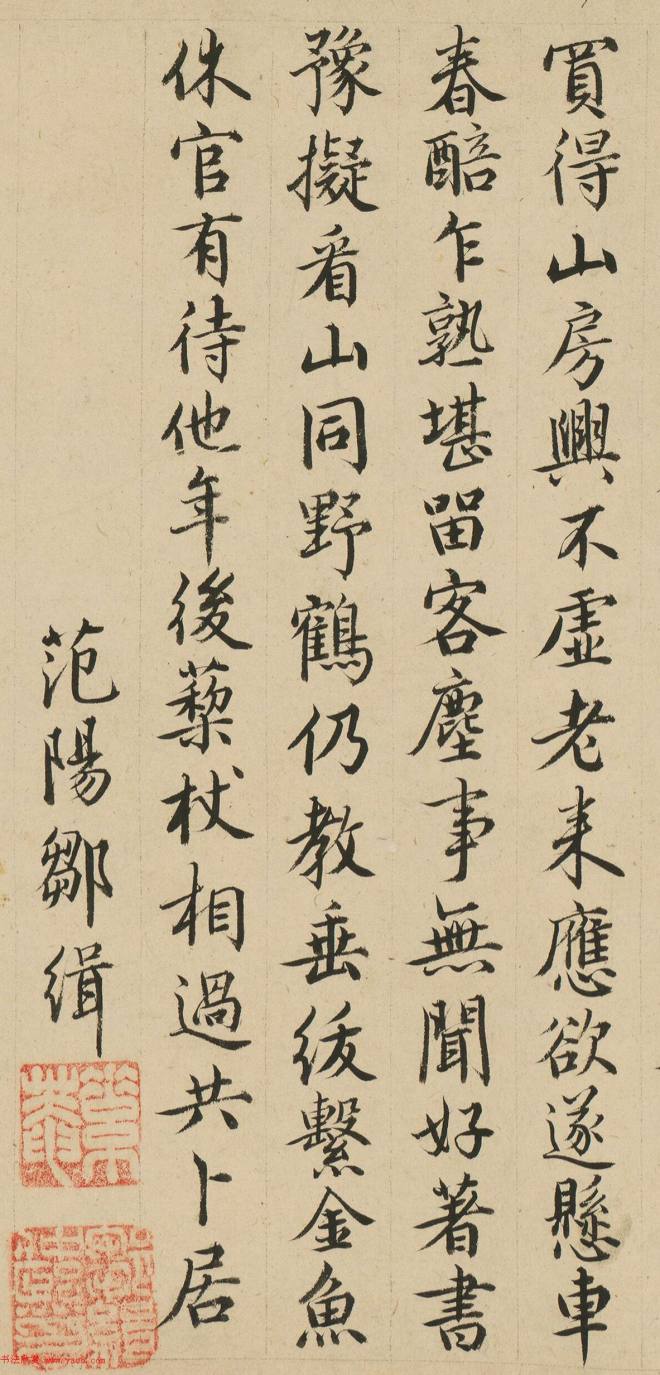 買得山房興不虛老来應欲遂懸車
春醅乍熟堪留客塵事無聞好著書
豫擬看山同野鶴仍教垂綬繫金魚
休官有待他年後藜杖相過共卜居
范陽鄒緝
书法欣赏 www.yac8.com